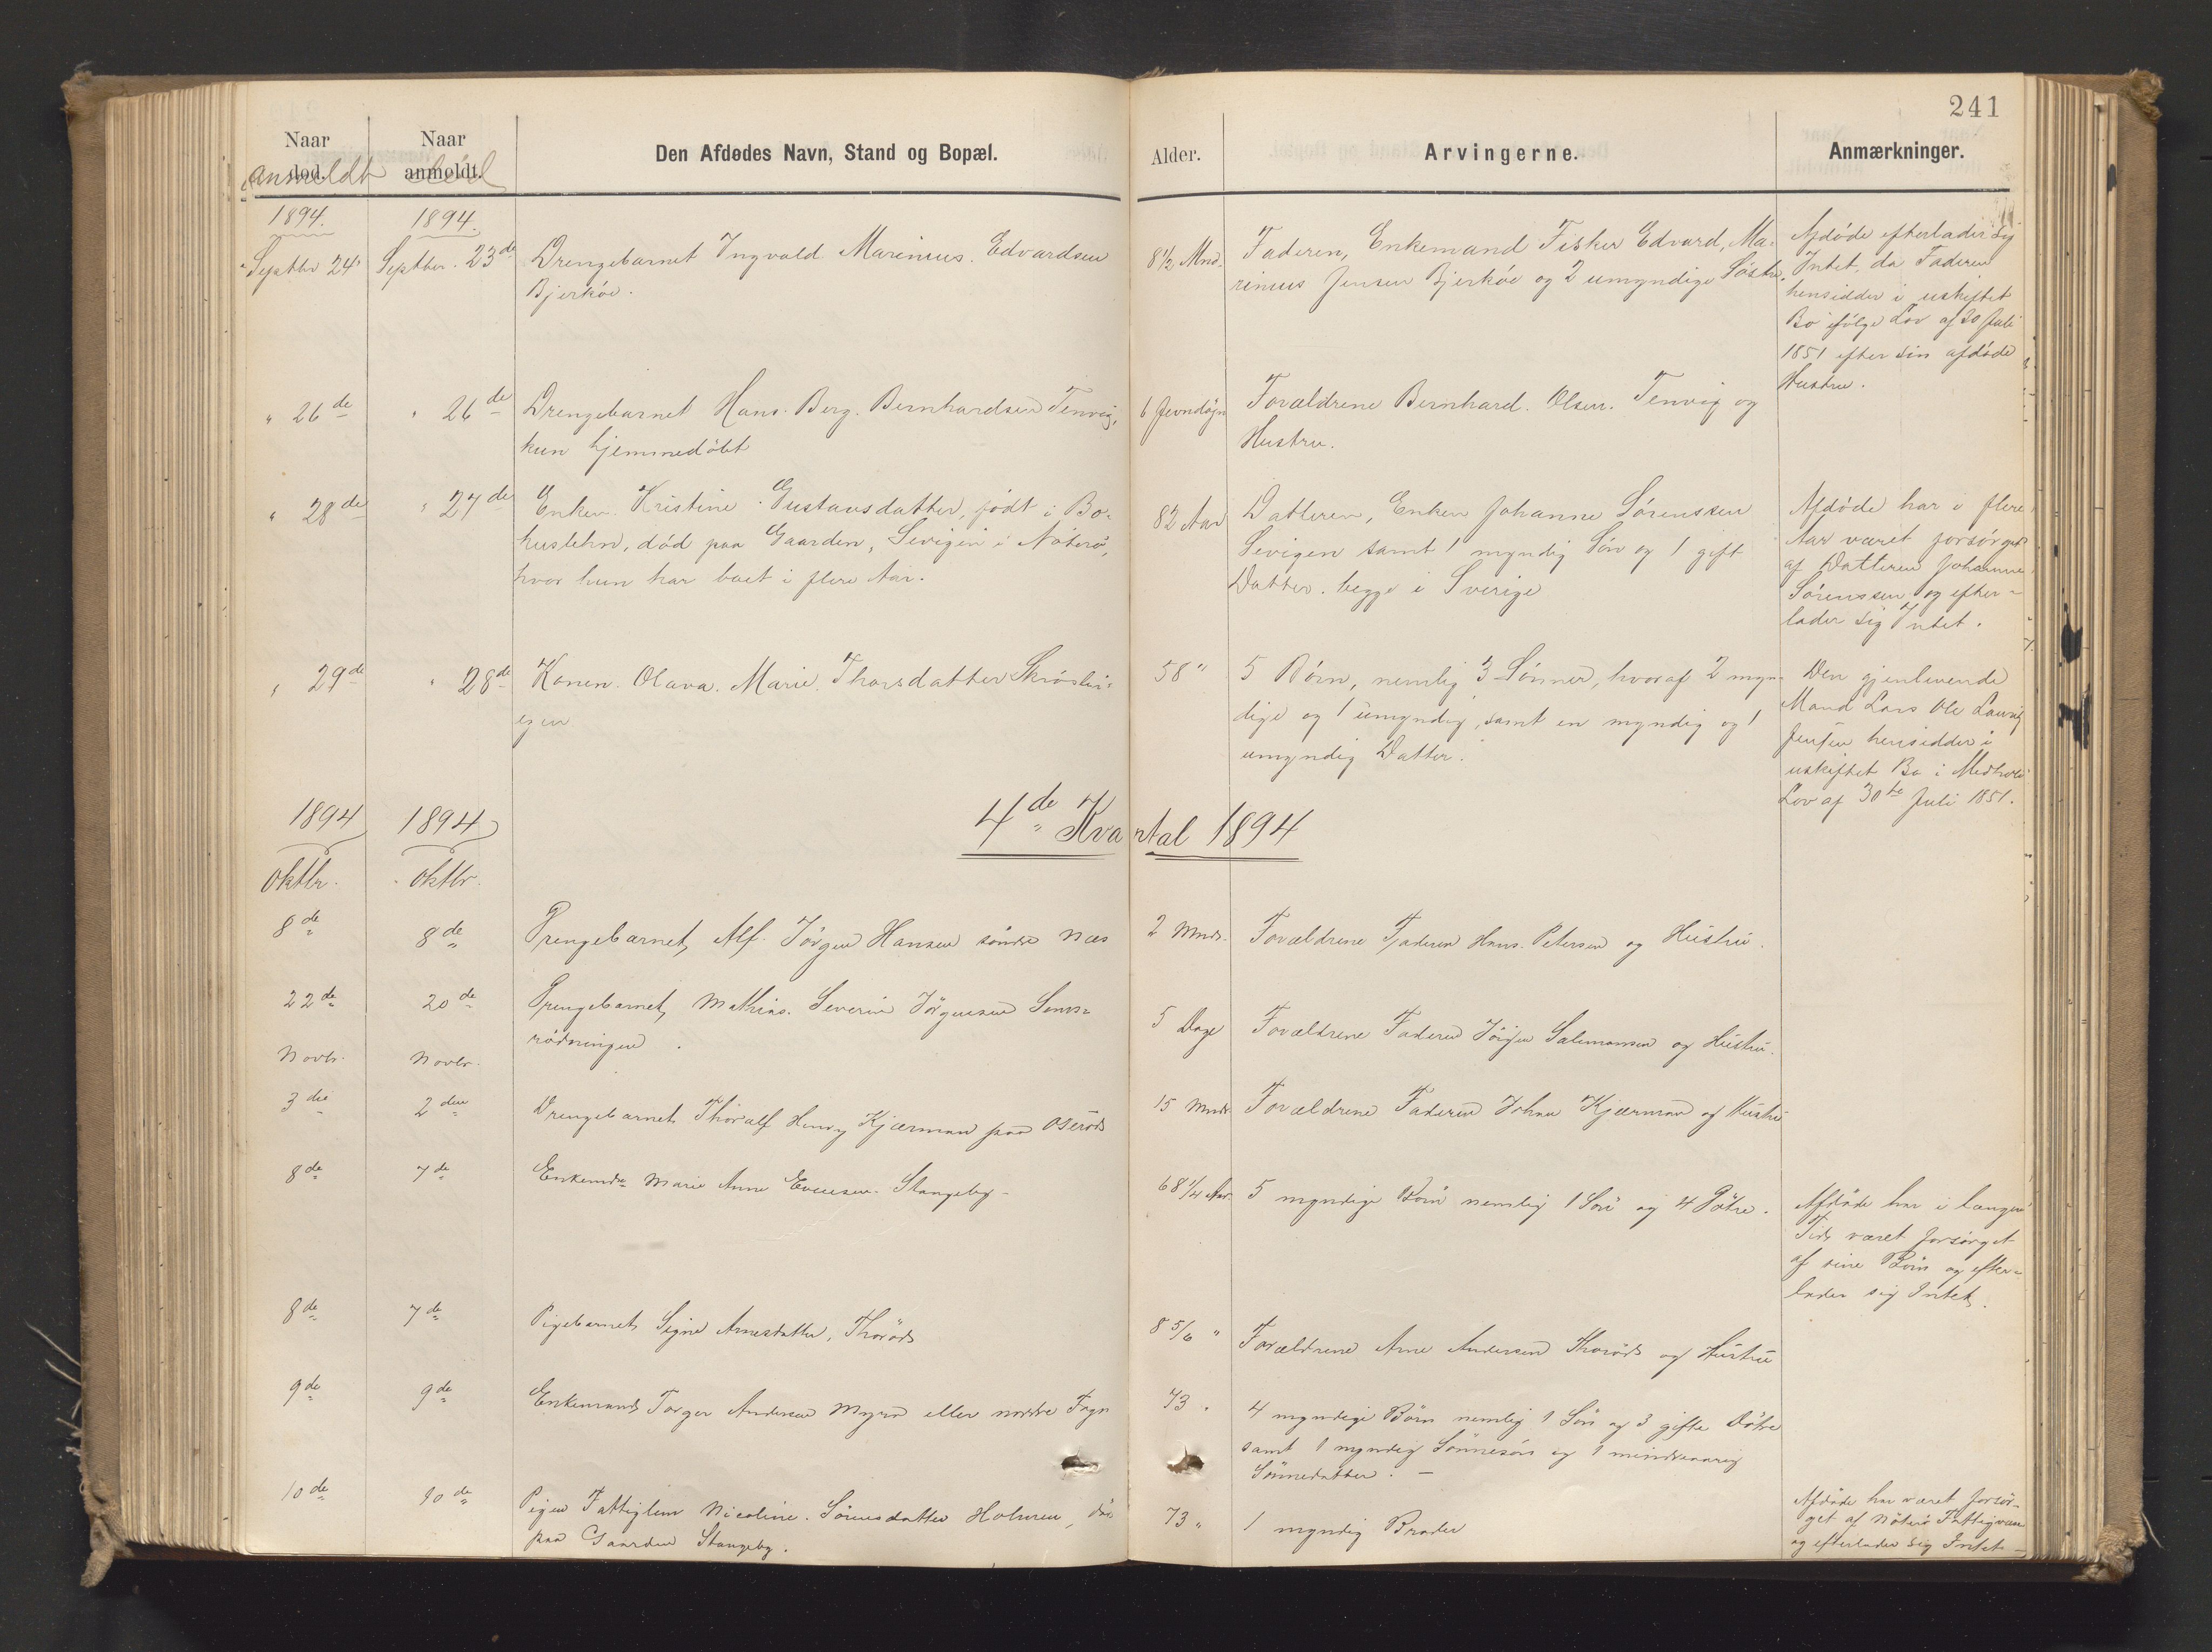 241
Naar død. anmeldt
Naar anmeldt. død
Den Afdødes Navn, Stand og Bopæl.
Alder.
Arvingerne.
Anmærkninger.
1894.
1894.
Septbr 24
Septbr. 23de
Drengebarnet Ingvald Marinius Edvardsen
Bjerkøe.
8½ Mnd.
Faderen, Enkemand Fisker Edvard, Ma-
rinius Jensen Bjerkøe og 2 umyndige Søstre.
Afdøde efterlader sig
Intet, da Faderen
hensidder i uskiftet
Bo ifølge Lov af 30 Juli
1851 efter sin afdøde
Hustru.
" 26de
" 26de
Drengebarnet Hans Berg. Bernhardsen Tenvig,
kun hjemmedøbt
6 Jevndøgn
Forældrene Bernhard Olsen Tenvig og
Hustru.
" 28de
" 27de
Enken Kristine Gustavsdatter, født i Bo-
huslehn, død paa Gaarden, Sevigen i Nøterø,
hvor hun har boet i flere Aar.
82 Aar
Datteren, Enken Johanne Sørenssen
Sevigen samt 1 myndig Søn og 1 gift
Datter. begge i Sverige
Afdøde har i flere
Aar været forsørget
af Datteren Johanne
Sørenssen og efter-
lader sig Intet.
" 29de
" 28de
Konen Olava. Marie Thorsdatter
58 "
5 Børn, nemlig 3 Sønner, hvoraf 2 myn-
dige og 1 umyndig, samt en myndig og 1
umyndig Datter.
Den gjenlevende
Mand Lars Ole Lauritz
Jensen hensidder i
uskiftet Bo i Medhold
Lov af 30te Juli 1851.
4de Kvartal 1894
1894
1894
Oktbr.
Oktbr.
8de
8de
Drengebarnet Alf Jörgen Hansen söndre Næs
2 Mnds.
Forældrene Faderen Hans Petersen og Hustru.
22de
20de
Drengebarnet, Mathias Severin Jörgensen Sems-
rödningen.
5 Dage
Forældrene Faderen Jörgen Salomonsen og Hustru.
Novbr.
Novbr.
3die
2den
Drengebarnet Thoralf Henry Kjærman paa Oseröd
15 Mnds
Forældrene Faderen Johan Kjærman og Hustru
8de
7de
Marie Anne Evensen Stangeby
68 1/4 Aar
5 myndige Börn nemlig 1 Sön og 4 Dötre.
Afdöde har i længere
Tid været forsörget
af sine Börn og efter-
lader sig Intet.
8de
7de
Pigebarnet Signe Arnesdatter, Thoröd
8 5/6 "
Forældrene Arne Andersen Thoröd og Hustru
9de
9de
Enkemand Torger Andersen Myra eller nordre
73 "
4 myndige Börn nemlig 1 Sön og 3 gifte Dötre
samt 1 myndig Sönnesön og 1 mindreaarig
Sönnedatter. —
10de
10de
Pigen Fattiglem Nicoline Sörensdatter Holmen, död
paa Gaarden Stangeby.
73 "
1 myndig Broder
Afdöde har været forsör-
get af Nöterö Fattigvæsen
og efterlader sig Intet —